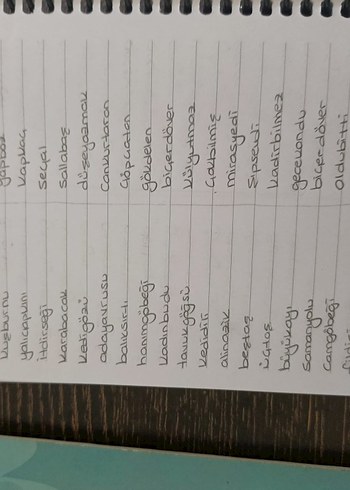 kuşburnu yapboz
yalıçapkını kapkaç
itdirseği seçal
karabacak sallabaş
kedigözü düşeyazmak
adayavrusu cankurtaran
balıksırtı çöpçatan
hanımgöbeği gökdelen
kadınbudu biçerdöver
tavukgöğsü külyutmaz
kedidili çokbilmiş
alinazik mirasyedi
beştaş şıpsevdi
üçtaş kadirbilmez
büyükayı gecekondu
samanyolu biçerdöver
camgöbeği oldubitti